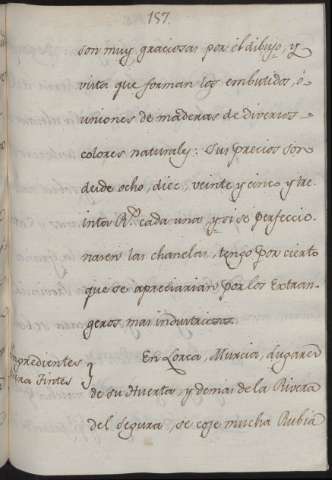 157.
son muy graciosas por el dibujo, y
vista que forman los embutidos, ó
uniones de maderas de diversos
colores naturales: Sus precios son
desde ocho, diez, veinte y cinco y tre
inta Rs. cada una, y si se perfeccio
nasen las charelas, tengo por cierto
que se apreciarian por los Extran-
geros mas industriosos.
Ingredientes
para Tintes
En Lorca, Murcia, Lugares
de su Huerta, y demas de la Rivera
del Segura, se coje mucha Rubia